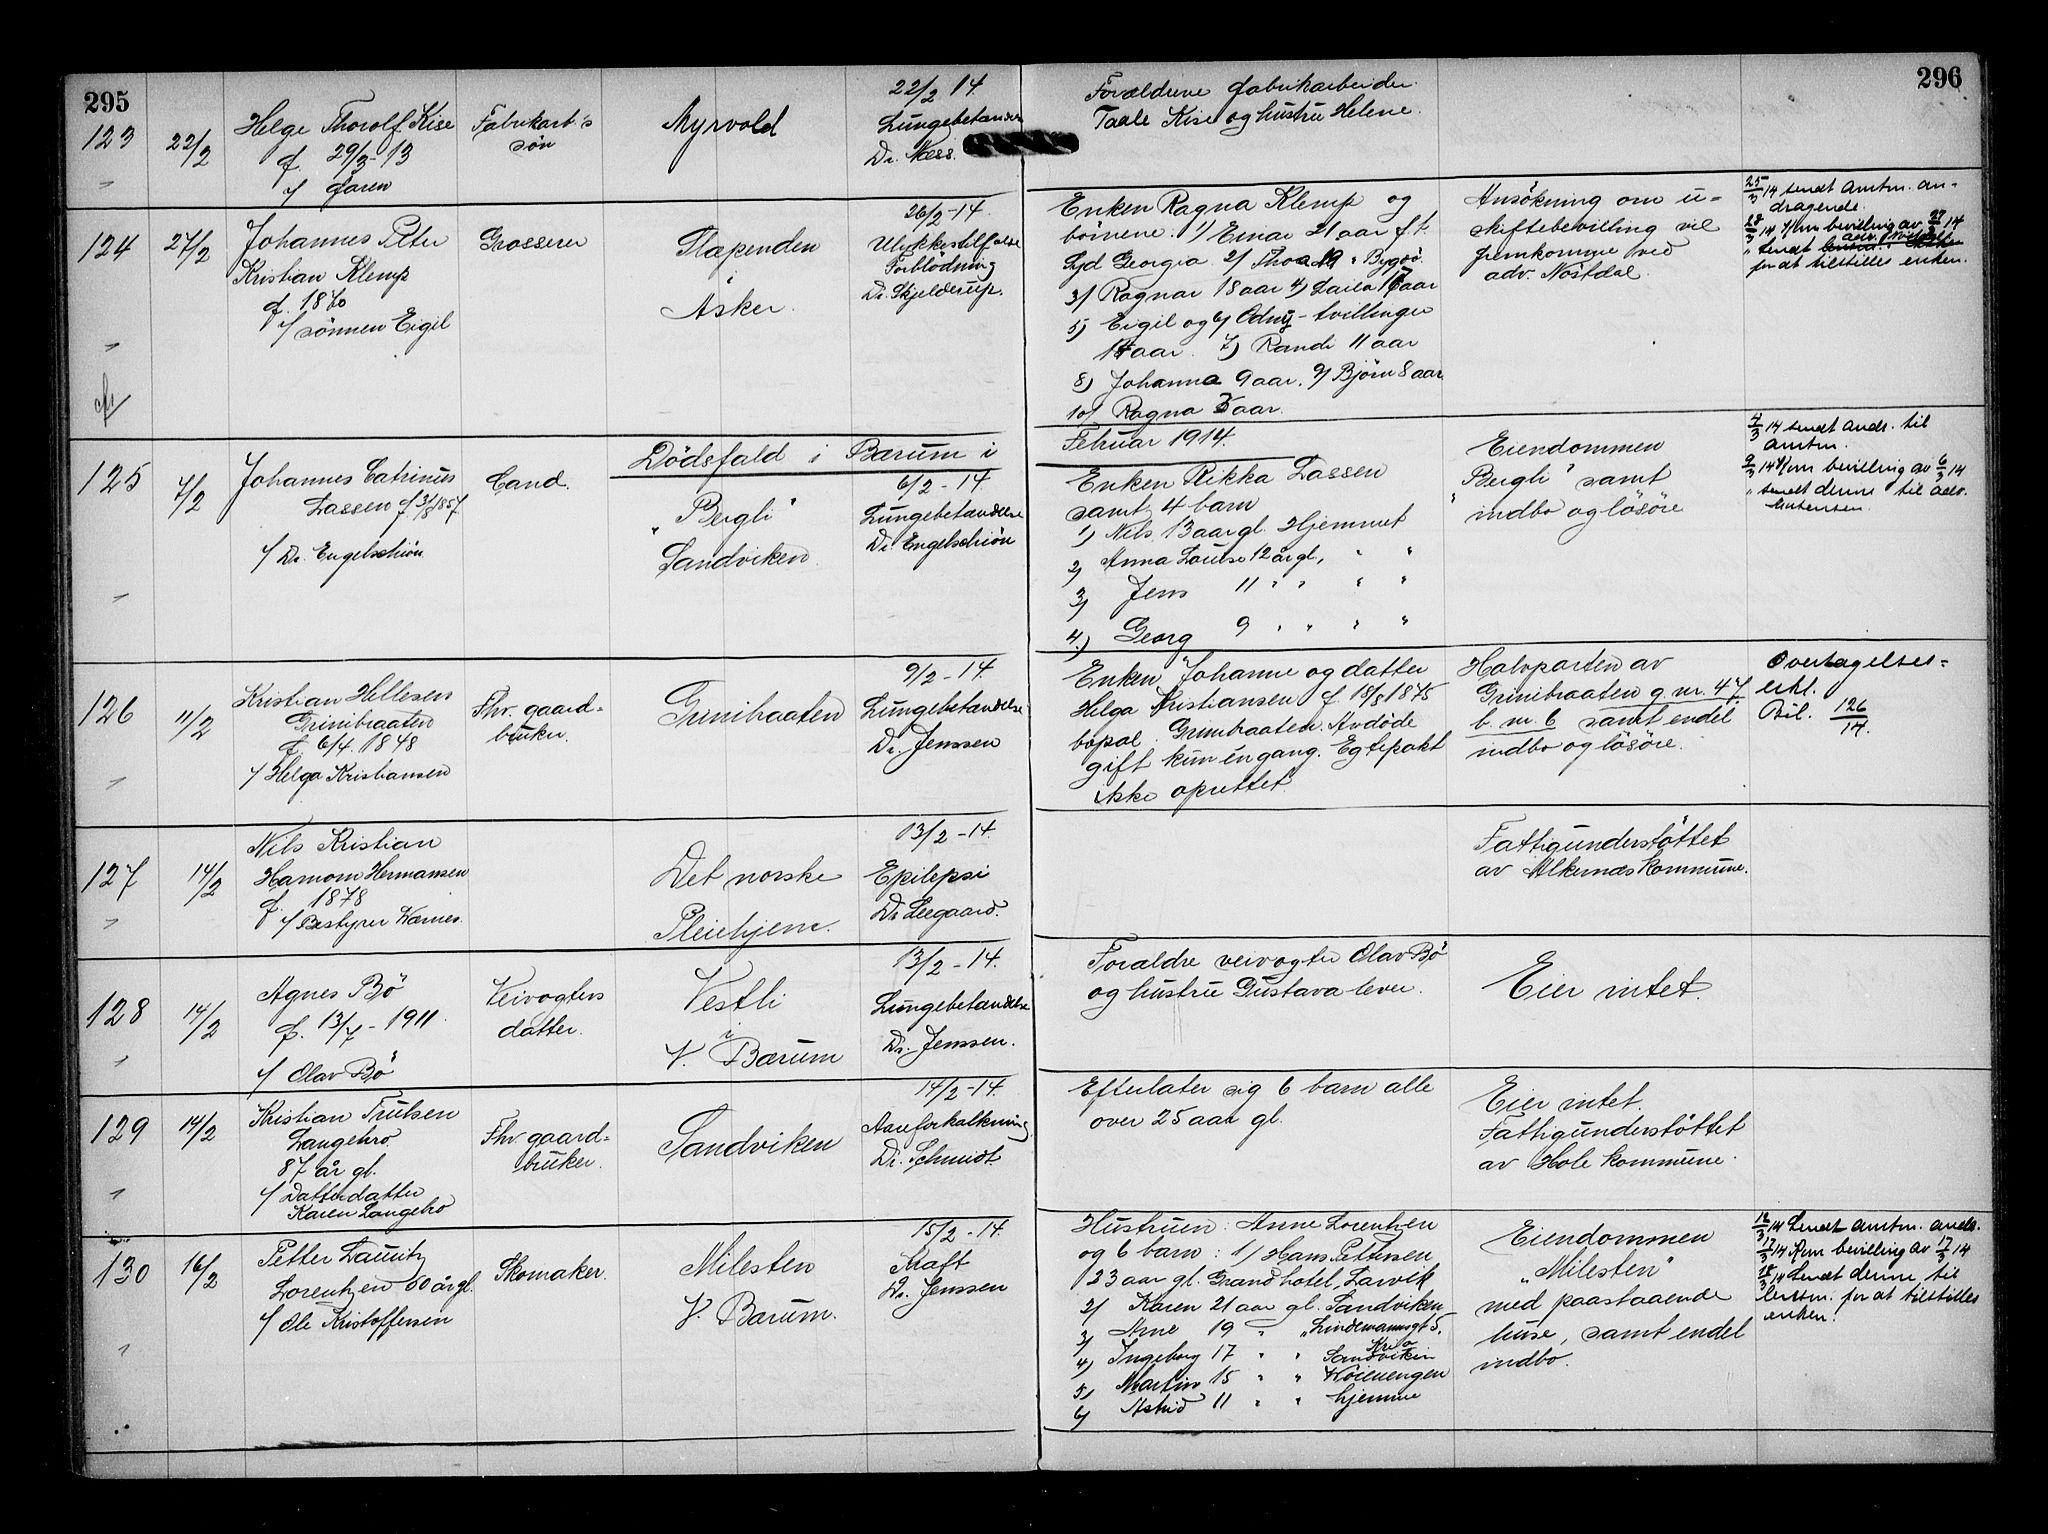 295
296
123
22/2
Helge Thorolf Kise
f. 29/3-13
v/ faren
Fabrikarb's
søn
Myrvold
22/2 14
Lungebetændelse
Dr. Næss.
Forældrene fabrikarbeider
Taale Kise og hustru Helene.
124
27/2
Johannes Peter
Kristian Klemp
f. 1870
v/ sönnen Eigil
Grosserer
Slæpenden
i
Asker.
26/2-14.
Ulykkestilfælde
Forblödning
Dr. Skjelderup.
Enken Ragna Klemp og
börnene: 1) Einar 21 aar f.t.
Syd Georgia 2) Thora 19 " Bygdö.
3) Ragnar 18 aar 4) Laila 17 aar
5) Eigil og 6) Odny - tvillinger
14 aar. 7) Randi 11 aar
8) Johanna 9 aar. 9) Björn 8 aar
10) Ragna 5 aar.
Ansökning om u-
skiftebevilling vil
fremkomme ved
adv. Nöstdal.
25/3 14 sendt Amtm. an-
dragende.
28/3 14 v/m bevilling av 27/3 14
" sendt
for at tilstilles enken.
Dödsfald i Bærum i
Februar 1914.
125
7/2
Johannes Catrinus
Lassen f. 31/8 1857
v/ Dr. Engelschiön
Cand.
"Bergli"
Sandviken.
6/2 - 14.
Lungebetændelse
Dr. Engelschiön
Enken Rikka Lassen
samt 4 barn
1) Nils 13 aar gl. Hjemmet
2) Anna Louise 12 år gl. " "
3) Jens 11 " " " "
4.) Georg 9 " " " "
Eiendommen
"Bergli" samt
indbo og lösöre
4/3 14 sendt andr. til
Amtm.
9/3 14 v/m bevilling av 6/3 14
" sendt denne til adv.
126
11/2
Kristian Hellesen
Grinibraaten
f. 6/4. 1848
v/ Helga Kristiansen
Fhv. gaard-
bruker.
Grinibraaten
9/2 - 14.
Lungebetændelse
Dr. Jenssen
Enken Johanne og datter
Helga Kristiansen f 18/8 1875
bopæl Grinibraaten. Avdöde
gift kun en gang. Egtepakt
ikke oprettet
Halvparten av
Grinibraaten g. nr. 47
b. nr. 6 samt endel
indbo og lösöre.
Overtagelses-
erkl.
Bil. 126/14.
127
14/2
Nils Kristian
Hamom Hermansen
f. 1878
v/ Bestyrer Værnes.
Det norske
Pleiehjem.
13/2 - 14.
Epilepsi
Dr. Leegaard.
Fattigunderstöttet
av Alkernæs kommune.
128
14/2
Agnes Bö
f. 13/7 - 1911.
v/ Olav Bö
Veivogters
datter.
Vestli
i
V. Bærum
13/2 - 14.
Lungebetændelse
Dr. Jenssen.
Forældre veivogter Olav Bö
og hustru Gustava lever.
Eier intet.
129
14/2
Kristian Trulsen
Langebro
87 år gl.
v/ Datterdatter
Karen Langebro
Fhv gaard-
bruker.
Sandviken
14/2 - 14.
Aareforkalkning
Dr. Schmidt
Efterlater sig 6 barn alle
over 25 aar gl.
Eier intet.
Fattigunderstöttet
av Hole kommune.
130
16/2
Petter Lauritz
Lorentzen 50 år gl.
v/ Ole Kristoffersen
Skomaker.
Milesten
V. Bærum.
15/2 - 14.
Kræft
Dr. Jenssen
Hustruen: Anne Lorentzen
og 6 barn: 1) Hans Pettersen
23 aar gl. Grand hotel Larvik
2) Karen 21 aar gl. Sandviken
3) Arne 19 " " Lindemannsgt 5,
Kr.a
4) Ingeborg 17 " " Sandviken
5) Martin 15 " "
6) Astrid 11 " " hjemme
Eiendommen
"Milesten"
med paastaaende
huse, samt endel
indbo.
12/3 14 Sendt Amtm. andr.
17/3 14 v/m bevilling av 17/3 14
18/3 14 Sendt denne til
lensm. for at tilstilles
enken.